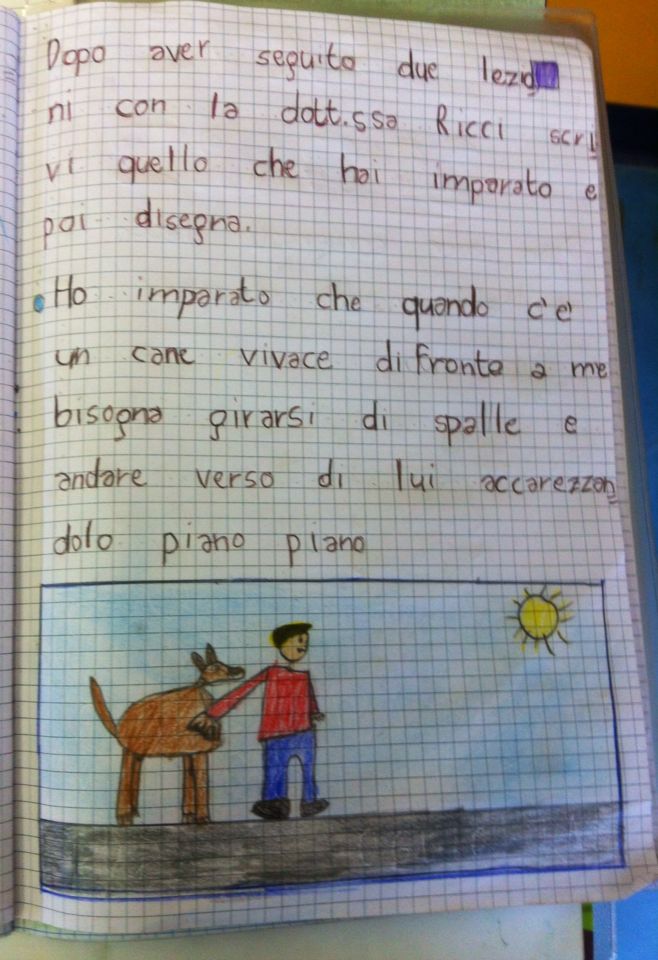 Dopo aver seguito due lezio
ni con la dott.ssa Ricci scri
vi quello che hai imparato e
poi disegna.
Ho imparato che quando c'è
un cane vivace di fronte a me
bisogna girarsi di spalle e
andare verso di lui accarezzan
dolo piano piano